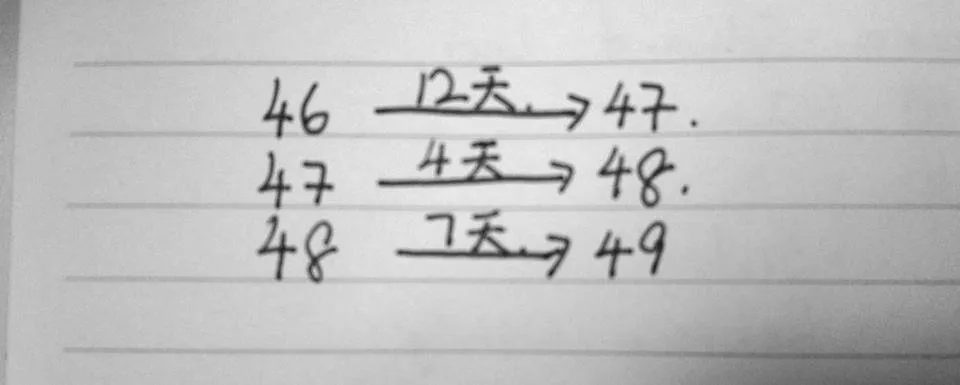 46 12天. → 47.
47 4天 → 48.
48 7天. → 49